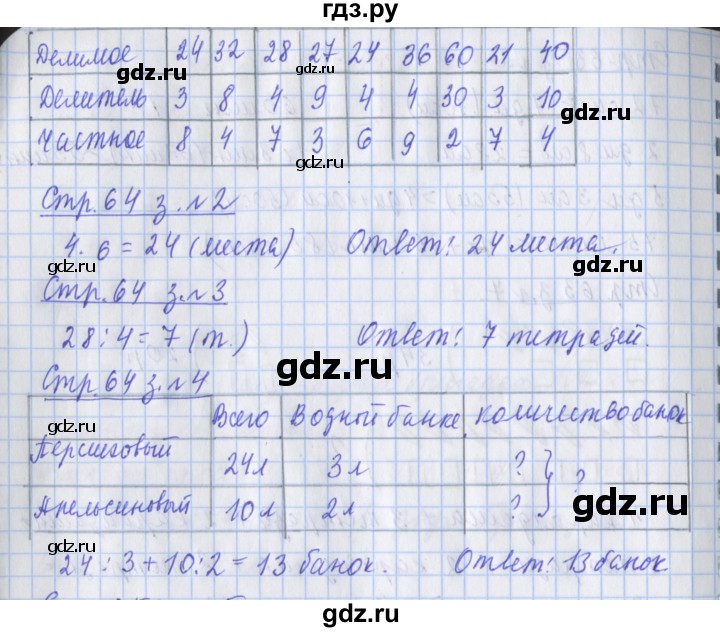 гдз.ру
Делимое 24 32 28 27 24 36 60 21 40
gdz.ru
Делитель 3 8 4 9 4 4 30 3 10
Частное 8 4 7 3 6 9 2 7 4
gdz.ru
Стр. 64 з. №2
4 · 6 = 24 (места) Ответ: 24 места.
gdz.ru gdz.ru
Стр. 64 з. №3
28 : 4 = 7 (т.) Ответ: 7 тетрадей.
gdz.ru
Стр. 64 з. №4
Всего В одный банке количество банок
gdz.ru
Персиковый 24л 3л ? } ?
Апельсиновый 10л 2л ?
gdz.ru
gdz.ru
24 : 3 + 10 : 2 = 13 банок. Ответ: 13 банок
gdz.ru gdz.ru
gdz.ru